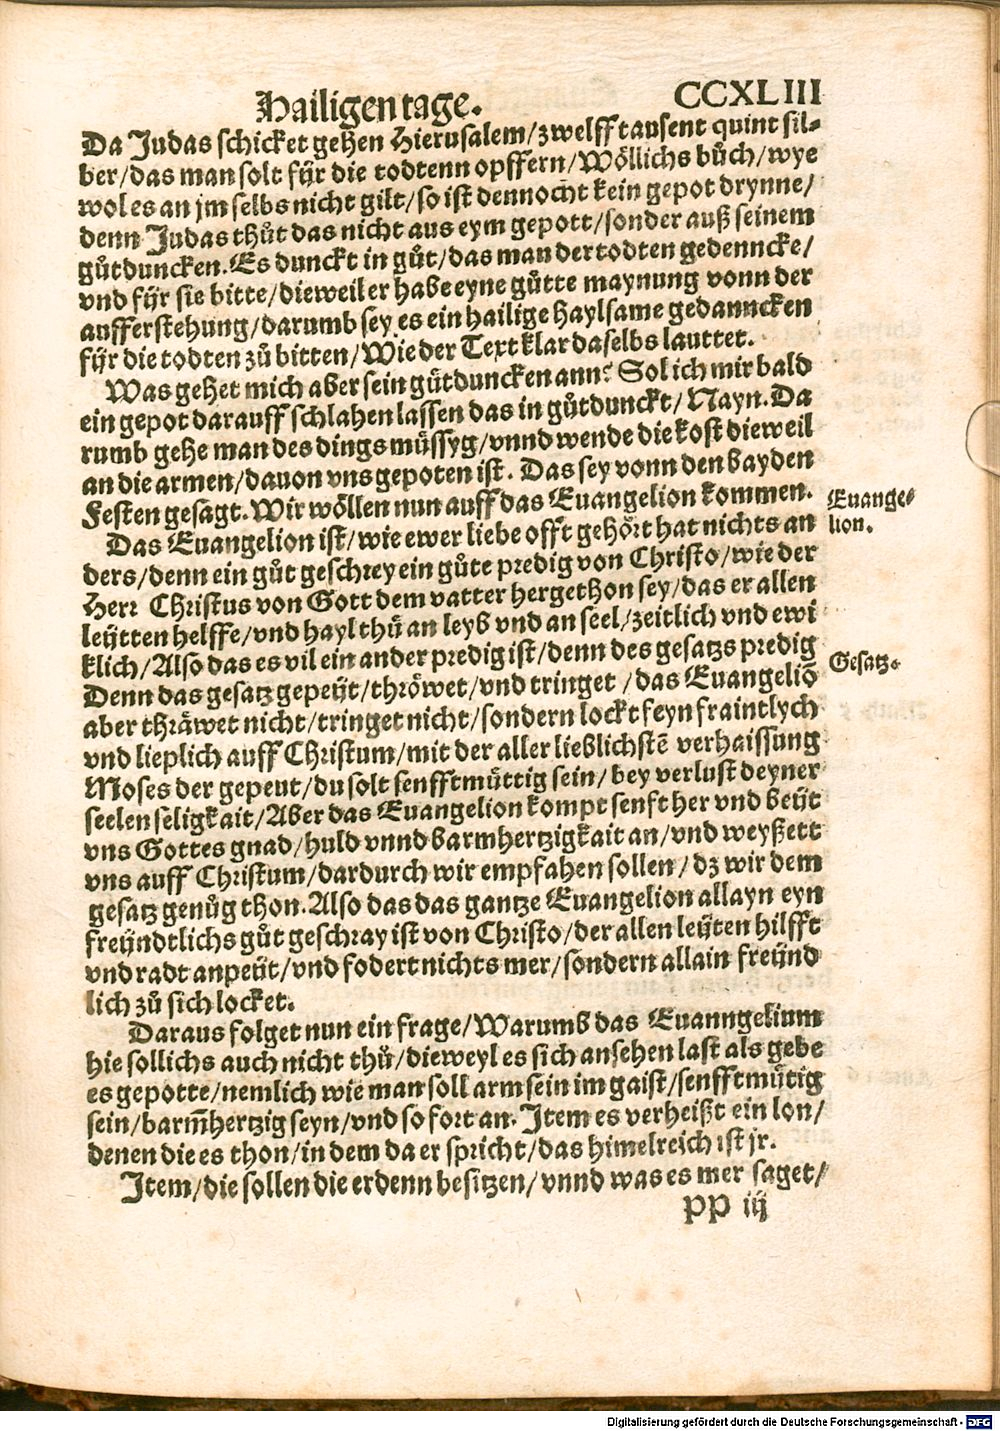 Hailigen tage. CCXLIII
Da Judas schicket gehen Hierusalem/zwelff tausent quint sil-
ber/das man solt fÿr die todtenn opffern/Wöllichs bůch/wye
wol es an jm selbs nicht gilt/so ist dennocht kein gepot drynne/
denn Judas thůt das nicht aus eym gepott/sonder auß seinem
gůtduncken. Es dunckt in gůt/das man der todten gedenncke/
vnd fÿr sie bitte/dieweil er habe eyne gůtte maynung vonn der
aufferstehung/darumb sey es ein hailige haylsame gedanncken
fÿr die todten zů bitten/Wie der Text klar daselbs lauttet.
Was gehet mich aber sein gůtduncken ann? Sol ich mir bald
ein gepot darauff schlahen lassen das in gůt dunckt/Nayn. Da
rumb gehe man des dings můssyg/vnnd wende die kost dieweil
an die armen/dauon vns gepoten ist. Das sey vonn den bayden
Festen gesagt. Wir wöllen nun auff das Euangelion kommen.
Euange-
lion.
Das Euangelion ist/wie ewer liebe offt gehört hat nichts an
ders/denn ein gůt geschrey ein gůte predig von Christo/wie der
Herr Christus von Gott dem vatter hergethon sey/das er allen
leÿtten helffe/vnd hayl thů an leyb vnd an seel/zeitlich vnd ewi
klich/Also das es vil ein ander predig ist/denn des gesatzs predig
Gesatz.
Denn das gesatz gepeÿt/thröwet/vnd tringet/das Euangeliō
aber thräwet nicht/tringet nicht/sondern lockt feyn fraintlych
vnd lieplich auff Christum/mit der aller lieblichstē verhaissung
Moses der gepeut/du solt senfftmůttig sein/bey verlust deyner
seelen seligkait/Aber das Euangelion kompt senft her vnd beüt
vns Gottes gnad/huld vnnd barmhertzigkait an/vnd weyßett
vns auff Christum/dardurch wir empfahen sollen/dz wir dem
gesatz genůg thon. Also das das gantze Euangelion allayn eyn
freÿndtlichs gůt geschray ist von Christo/der allen leÿten hilfft
vnd radt anpeüt/vnd fodert nichts mer/sondern allain freÿnd
lich zů sich locket.
Daraus folget nun ein frage/Warumb das Euanngelium
hie sollichs auch nicht thů/dieweyl es sich ansehen last als gebe
es gepotte/nemlich wie man soll arm sein im gaist/senfftmůtig
sein/barm̄hertzig seyn/vnd so fort an. Item es verheißt ein lon/
denen die es thon/in dem da er spricht/das himelreich ist jr.
Item/die sollen die erdenn besitzen/vnnd was es mer saget/
pp iij
Digitalisierung gefördert durch die Deutsche Forschungsgemeinschaft - DFG